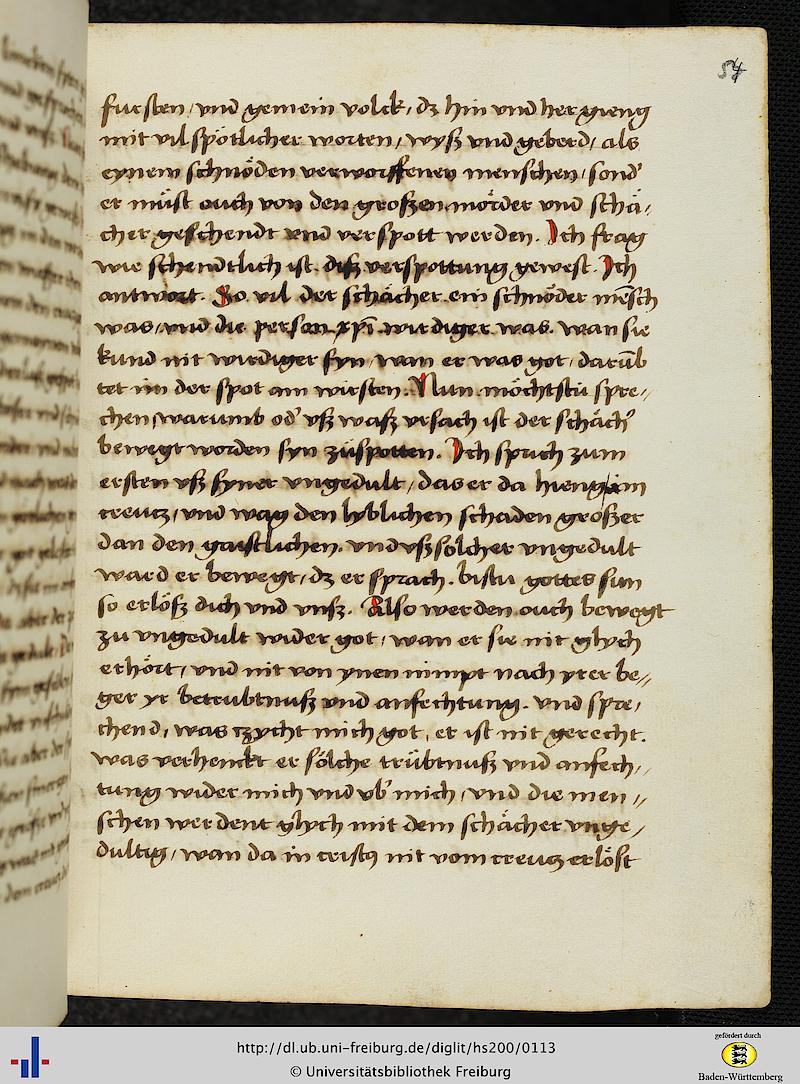 54
fursten / vnd gemein volck / dz hin vnd her gieng
mit vil spötlicher worten / wyß vnd geberd / als
eynem schnöden verworffenen menschen / sond'
er müst ouch von den großen mörder vnd schä-
cher geschendt vnd verspott werden. Ich frag
wie schendtlich ist diß verspottung gewest. Ich
antwort. So vil der schächer ein schnöder mēsch
was / vnd die person xp̄i wirdiger was. wan sie
kund nit wirdiger syn / wan er was got / darūb
tet im der spot am wirsten. Nun möchtstu spre-
chen / warumb od' vß waß vrsach ist der schäch'
bewegt worden syn zů spotten. Ich sprich zum
ersten vß syner vngedult / das er da hieng im
creucz / vnd wag den lyblichen schaden größer
dan den gaistlichen. vnd vß solcher vngedult
ward er bewegt / dz er sprach. bistu gottes sun
so erlöß dich vnd vnß. Also werden ouch bewegt
zu vngedult wider got / wan er sie nit glych
erhört / vnd nit von ynen nimpt nach yrer be-
ger yr betrubtnuß vnd anfechtung. vnd spre-
chend / was czycht mich got / er ist nit gerecht.
was verhenckt er sölche trübtnuß vnd anfech-
tung wider mich vnd vb' mich / vnd die men-
schen werdent glych mit dem schächer vnge-
dultig / wan da in cristus nit vom creucz erlöst
http://dl.ub.uni-freiburg.de/diglit/hs200/0113
© Universitätsbibliothek Freiburg
gefördert durch
Baden-Württemberg